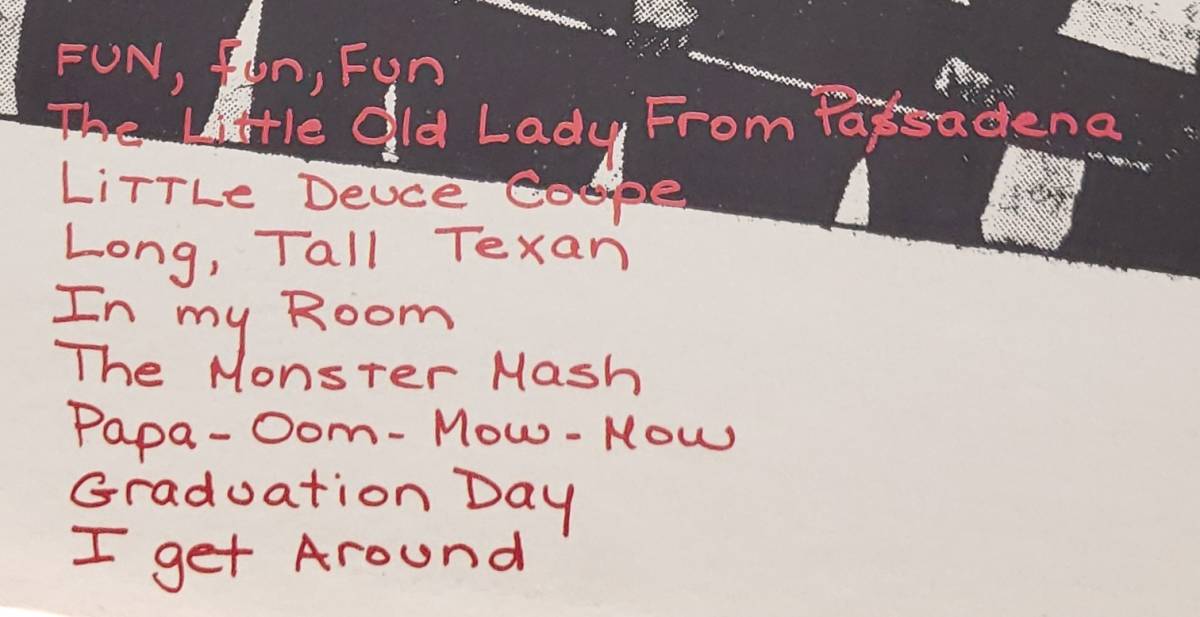 FUN, fun, Fun
The Little Old Lady From Passadena
LiTTLe Deuce Coupe
Long, Tall Texan
In my Room
The Monster Mash
Papa-Oom-Mow-Mow
Graduation Day
I get Around